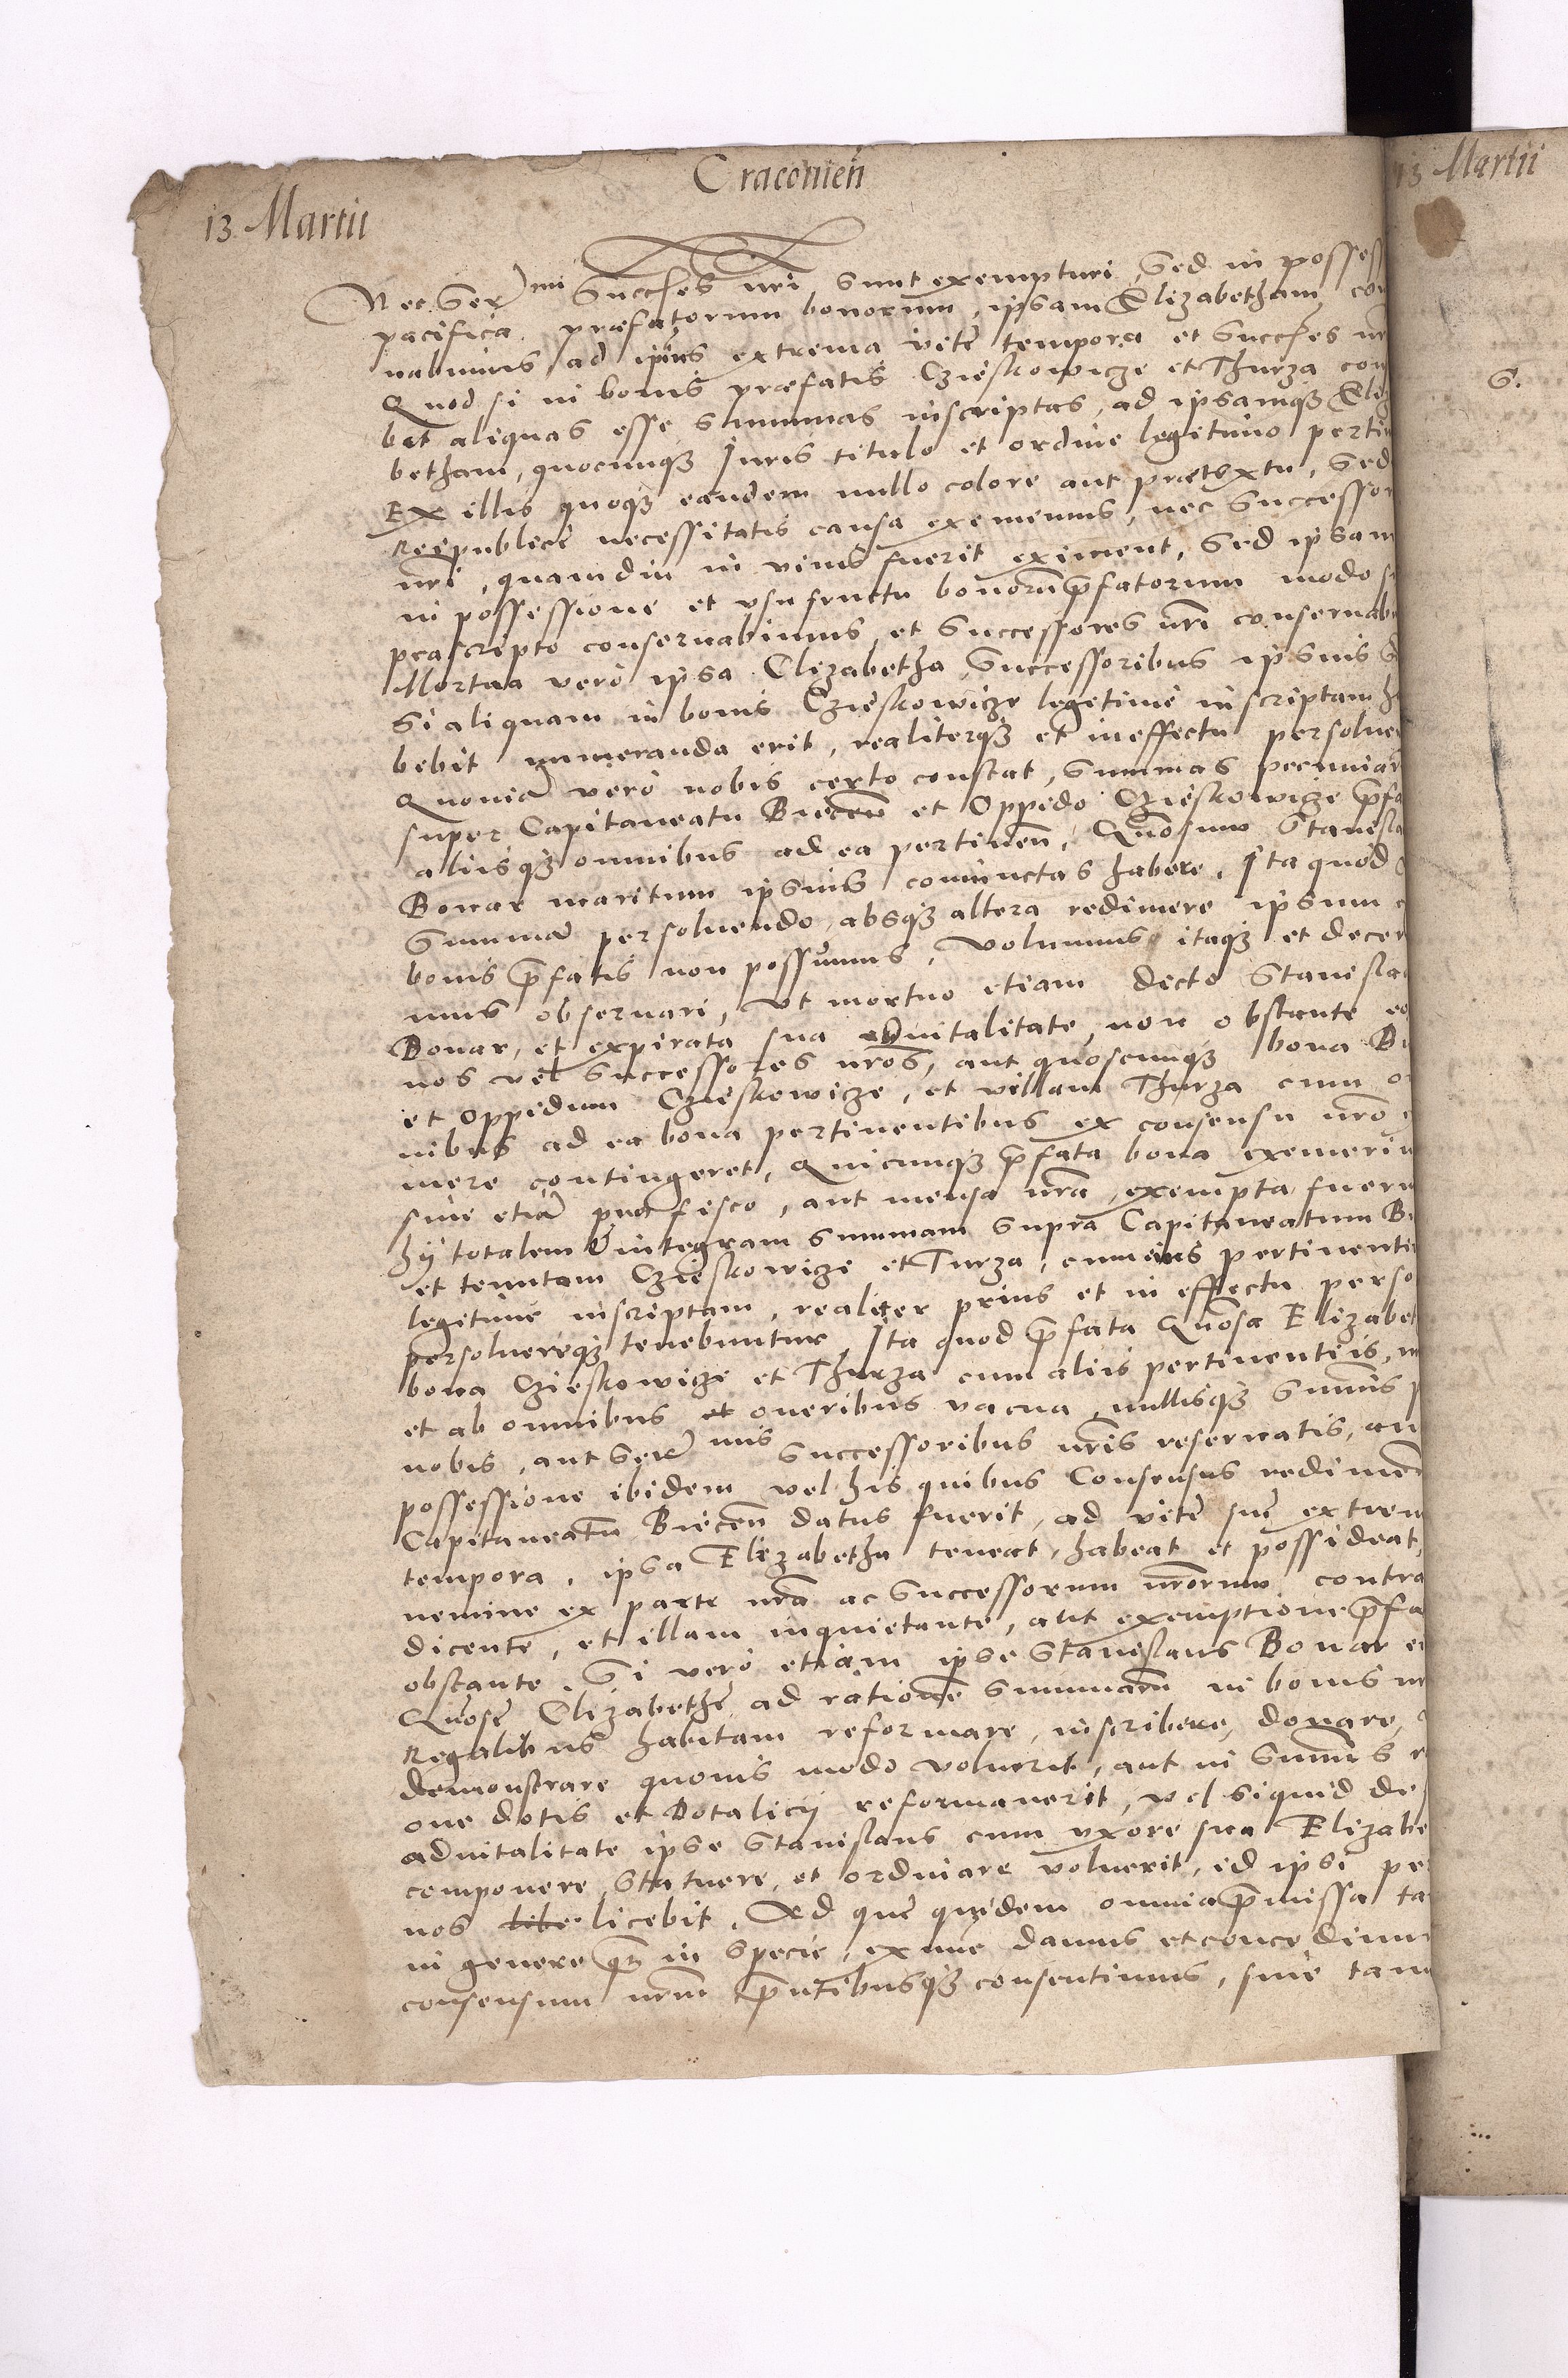 Craconień
13 Martii
13 Martii
Nec Ser mi Succes nri sunt exempturi, Sed in posses
pacifica præfatorum bonorum, ipsam Elizabetham con
nabimus ad ipius extrema vitæ tempora et Succes nr
Quod si in bonis præfatis Czieskowicze et Thurza con
bat aliquas esse summas inscriptas, ad ipsamq3 Eliz
betham, quocumq3 Juris titulo et ordine legitimo perti
Ex illis quoq3 eandem nullo colore aut prætextu, sed
Reipublicæ necessitatis causa eximemus, nec Successor
nri, quamdiu in vivis fuerit eximent, Sed ipsam
in possessione et vsufructu bonorū pfatorum modo s
præscripto conservabimus, et Successores nri conservab
Mortua vero ipsa Elizabetha, Successoribus ipsius s
Si aliquam in bonis Czieskowicze legetime inscriptam h
bebit numeranda erit, realiterq3 et in effectu persolve
Quoniā vero nobis certo constat, summas pecuniar
super Capitaneatu Biecen et Oppido Czieskowicze pfa
aliisq3 omnibus ad ea pertinen, Gnosum Stanisla
Bonar maritum ipsius coniunctas habere, Ita quod
Summā persolvendo, absq3 altera redimere ipsum
bonis pfatis non possumus, Volumus itaq3 et decer
mus observari, Vt mortuo etiam dicto Stanislao
Bonar, et expirata sua advitalitate, non obstante eo
nos vel Successores nros, aut quoscumq3 bona Bi
et Oppidum Czieskowicze, et villam Thurza cum o
nibus ad ea bona pertinentibus ex consensu nro
mere contingeret, Quicumq3 pfata bona exemerin
sive etiā pro fisco, aut mensa nra, exempta fuerin
hÿ totalem & integram summam supra Capitaneatum Bi
et tenutam Czieskowicze et Turza, cum eius pertinenti
legitime inscriptam, realiter prius et in effectu perso
persolvereq3 tenebuntur, Ita quod pfata Gnosa Elizabet
bona Czieskowicze et Thurza cum aliis pertinentiis,
et ab omnibus et oneribus vacua, nullisq3 summis p
nobis, aut Ser mis Successoribus nris reservatis, an
possessione ibidem vel his quibus Consensus redimen
Capitaneatu Biecen datus fuerit, ad vitæ suæ extrem
tempora, ipsa Elizabetha teneat, habeat et possideat,
nemine ex parte nra ac Successorum nrorum contra
dicente, et illam inquietante, aut exemptione pfa
obstante. Si vero etiam ipse Stanislaus Bonar ei
Gnosæ Elizabethæ ad rationē summarū in bonis nr
Regalibus habitam reformare, inscribere, donare,
demonstrare quovis modo voluerit, aut in summis r
one dotis et Dotalicÿ reformaverit, vel siquid de
advitalitate ipse Stanislaus cum vxore sua Elizabe
componere, Statuere, et ordinare voluerit, id ipsi per
nos libe licebit. Ad quæ quidem omnia pmissa ta
in genere q3 in specie, ex nunc damus et concedimu
consensum nrum pntibusq3 consentimus, sive tam
G.